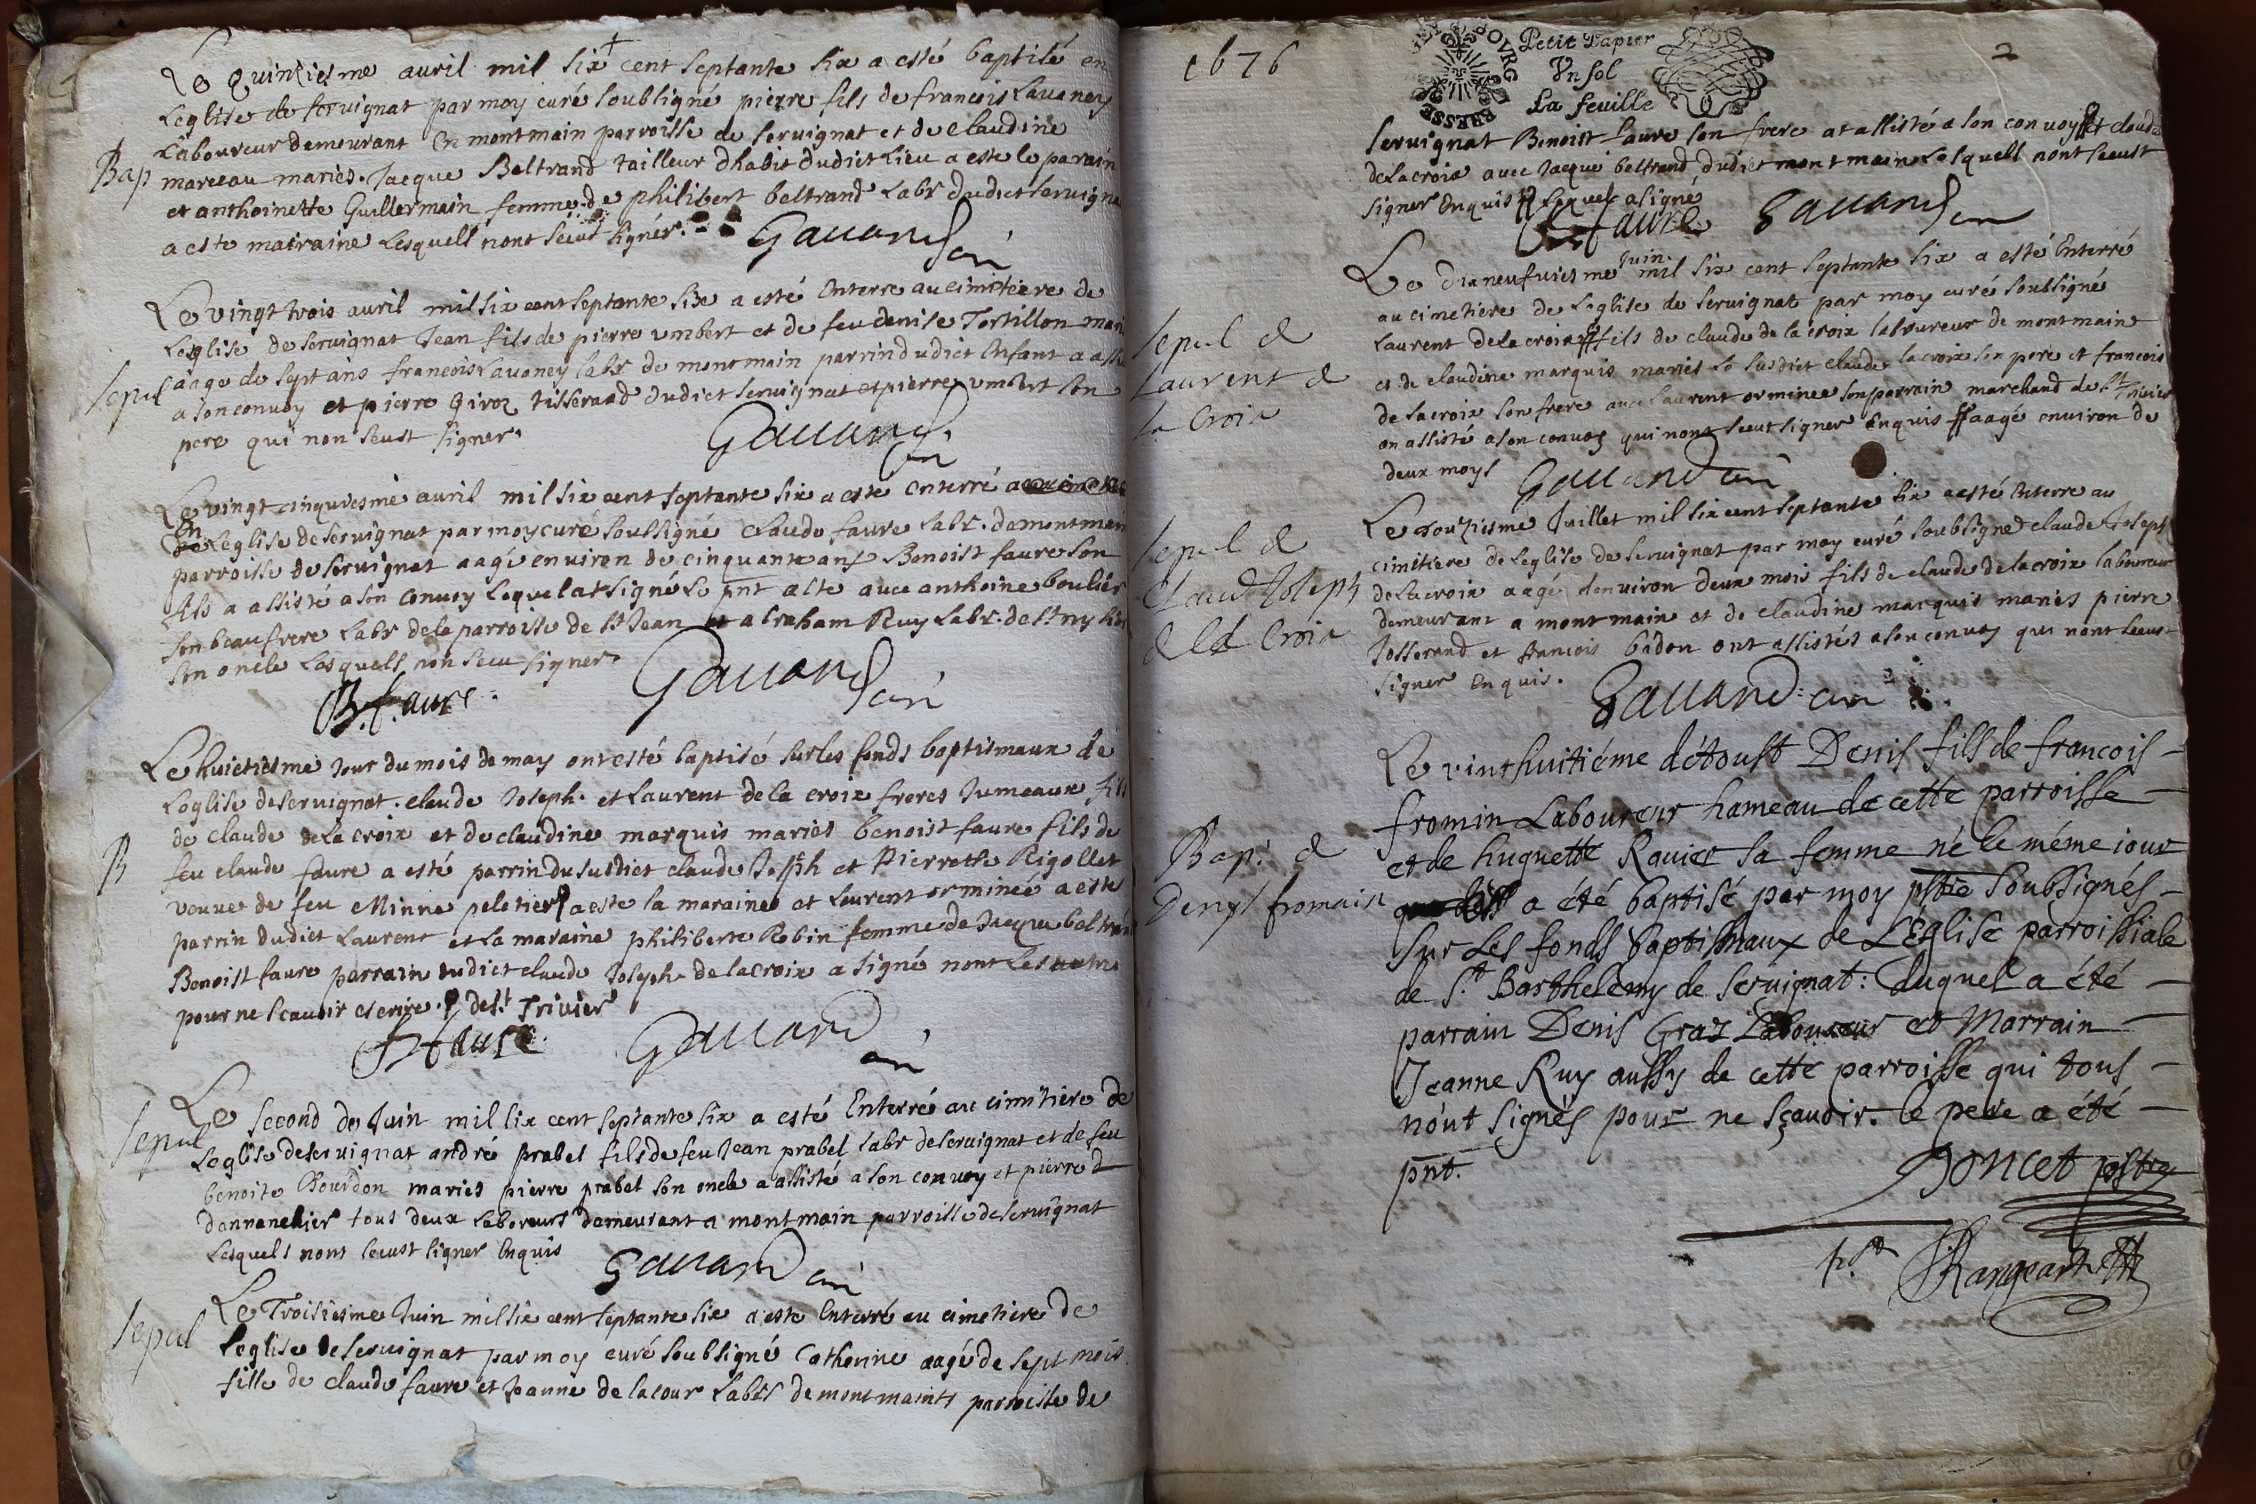 Le Quinziesme auril mil six cent septante six a esté baptisé en
Leglise de seruignat par moy curé soubsigné pierre fils de francois Lauaney
Laboureur demeurant en montmain parroisse de seruignat et de Claudine
Bap
marceau mariés. Jacque Beltrand tailleur dhabit dudict Lieu a esté le parain
et anthoinette Guillermain femme de philibert beltrand Labr dudict seruigna
a este mairaine Lesquels nont sceut signér.
Gauand
Le vingt trois auril mil six cent septante six a esté enterre au cimitiere de
Leglise de seruignat Jean fils de pierre vmbert et de feu denise Tortillon mari
Sepul
aage de sept ans francois Lauaney labr de montmain parrin dudict enfant a assi
a son conuoy et pierre Giroz tisserand dudict seruignat et pierre vmbert son
pere qui non seust signer.
Gauand
Le vingt cinquiesme auril mil six cent septante six a este enterré
en Leglise de seruignat par moy curé soubsigné Claude faure labr. de montmain
parroisse de seruignat aagé enuiron de cinquante ans Benoist faure son
fils a assisté a son conuoy Lequel at signé le pnt acte auec anthoine boulier
son beaufrere Labr de la parroisse de St Jean et abraham Ruy Labr. de
son oncle Lesquells non sceu signer
B. faure.
Gauand
Le huictiesme Jour du mois de may ont esté baptisé sur les fonds baptismaux de
Leglise de seruignat. claude Joseph. et Laurent de la croix freres Jumeaux fils
de Claude de La croix et de claudine marquis mariés benoist faure fils de
B
feu claude faure a esté parrin du susdict claude Joseph et Pierrette Rigollet
veuue de feu Minne peletier a este la maraine et Laurent orminée a este
parrin dudict Laurent et La maraine philiberte Robin femme de Jacque beltrand
Benoist faure parrain dudict claude Joseph de lacroix a signé nont les autre
pour ne scauoir escrire. de St Triuier
faure
Gauand
Le second de Juin mil six cent septante six a esté Enterré au cimitiere de
Sepul
Leglise de seruignat andré prabel fils de feu Jean prabel labr de seruignat et de feu
benoite Bourdon mariés pierre prabel son oncle a assisté a son conuoy et pierre
dannanchier tous deux Laboreurs demeurant a montmain parroisse de seruignat
Lesquels nont sceust signer Enquis
Gauand
Le Troisiesme Juin mil six cent septante six a este Enterré au cimetiere de
Sepul
Leglise de seruignat par moy curé soubsigné Catherine aagé de sept mois.
fille de claude faure et Jeanne de lacour Labrs de montmaint parroisse de
1676
BRESSE BOVRG
Petit Papier
Vn sol
La feuille
2
seruignat Benoist faure son frere at assisté a son conuoy et claude
de Lacroix auec Jacque beltrand dudict montmain Lesquells nont sceust
signer Enquis Lequel a signé
faure Gauand
Le dixneufuiesme Juin mil six cent septante six a esté Enterré
au cimetiere de Leglise de seruignat par moy curé soubsigné
Sepul d
Laurent d
la Croix
Laurent de la croix fils de claude de la croix laboureur de montmain
et de claudine marquis mariés Le susdict claude lacroix son pere et francois
de lacroix son frere auec Laurent orminee son parrain marchand de St Triuier
on assisté a son conuoy qui nont sceut signer Enquis aagé enuiron de
deux moys
Gauand
Le douziesme Juillet mil six cent septante six a esté Enterre au
Sepul d
Claud Joseph
d la Croix
cimitiere de Leglise de seruignat par moy curé soubsigné claude Joseph
de Lacroix aagé denuiron deux mois fils de claude de la croix laboureur
demeurant a montmain et de claudine marquis mariés pierre
Josserand et francois badon ont assistés a son conuoy qui nont sceust
signer Enquis.
Gauand
Le vinthuitiéme d'Aoust Denis fils de francois
fromin Laboureur hameau de cette parroisse
Bap. d
Denys fromain
et de huguette Rauier sa femme né le méme iour
a été baptisé par moy pbtre soubsignés
sur Les fonds baptismaux de L'Eglise parroissiale
de St. Barthelemy de seruignat: duquel a été
parrain Denis Graz Laboureur et Marrain
Jeanne Ruy aussy de cette parroisse qui tous
n'ont signés pour ne sçauoir. le pere a été
pnt.
Doncet pbtre